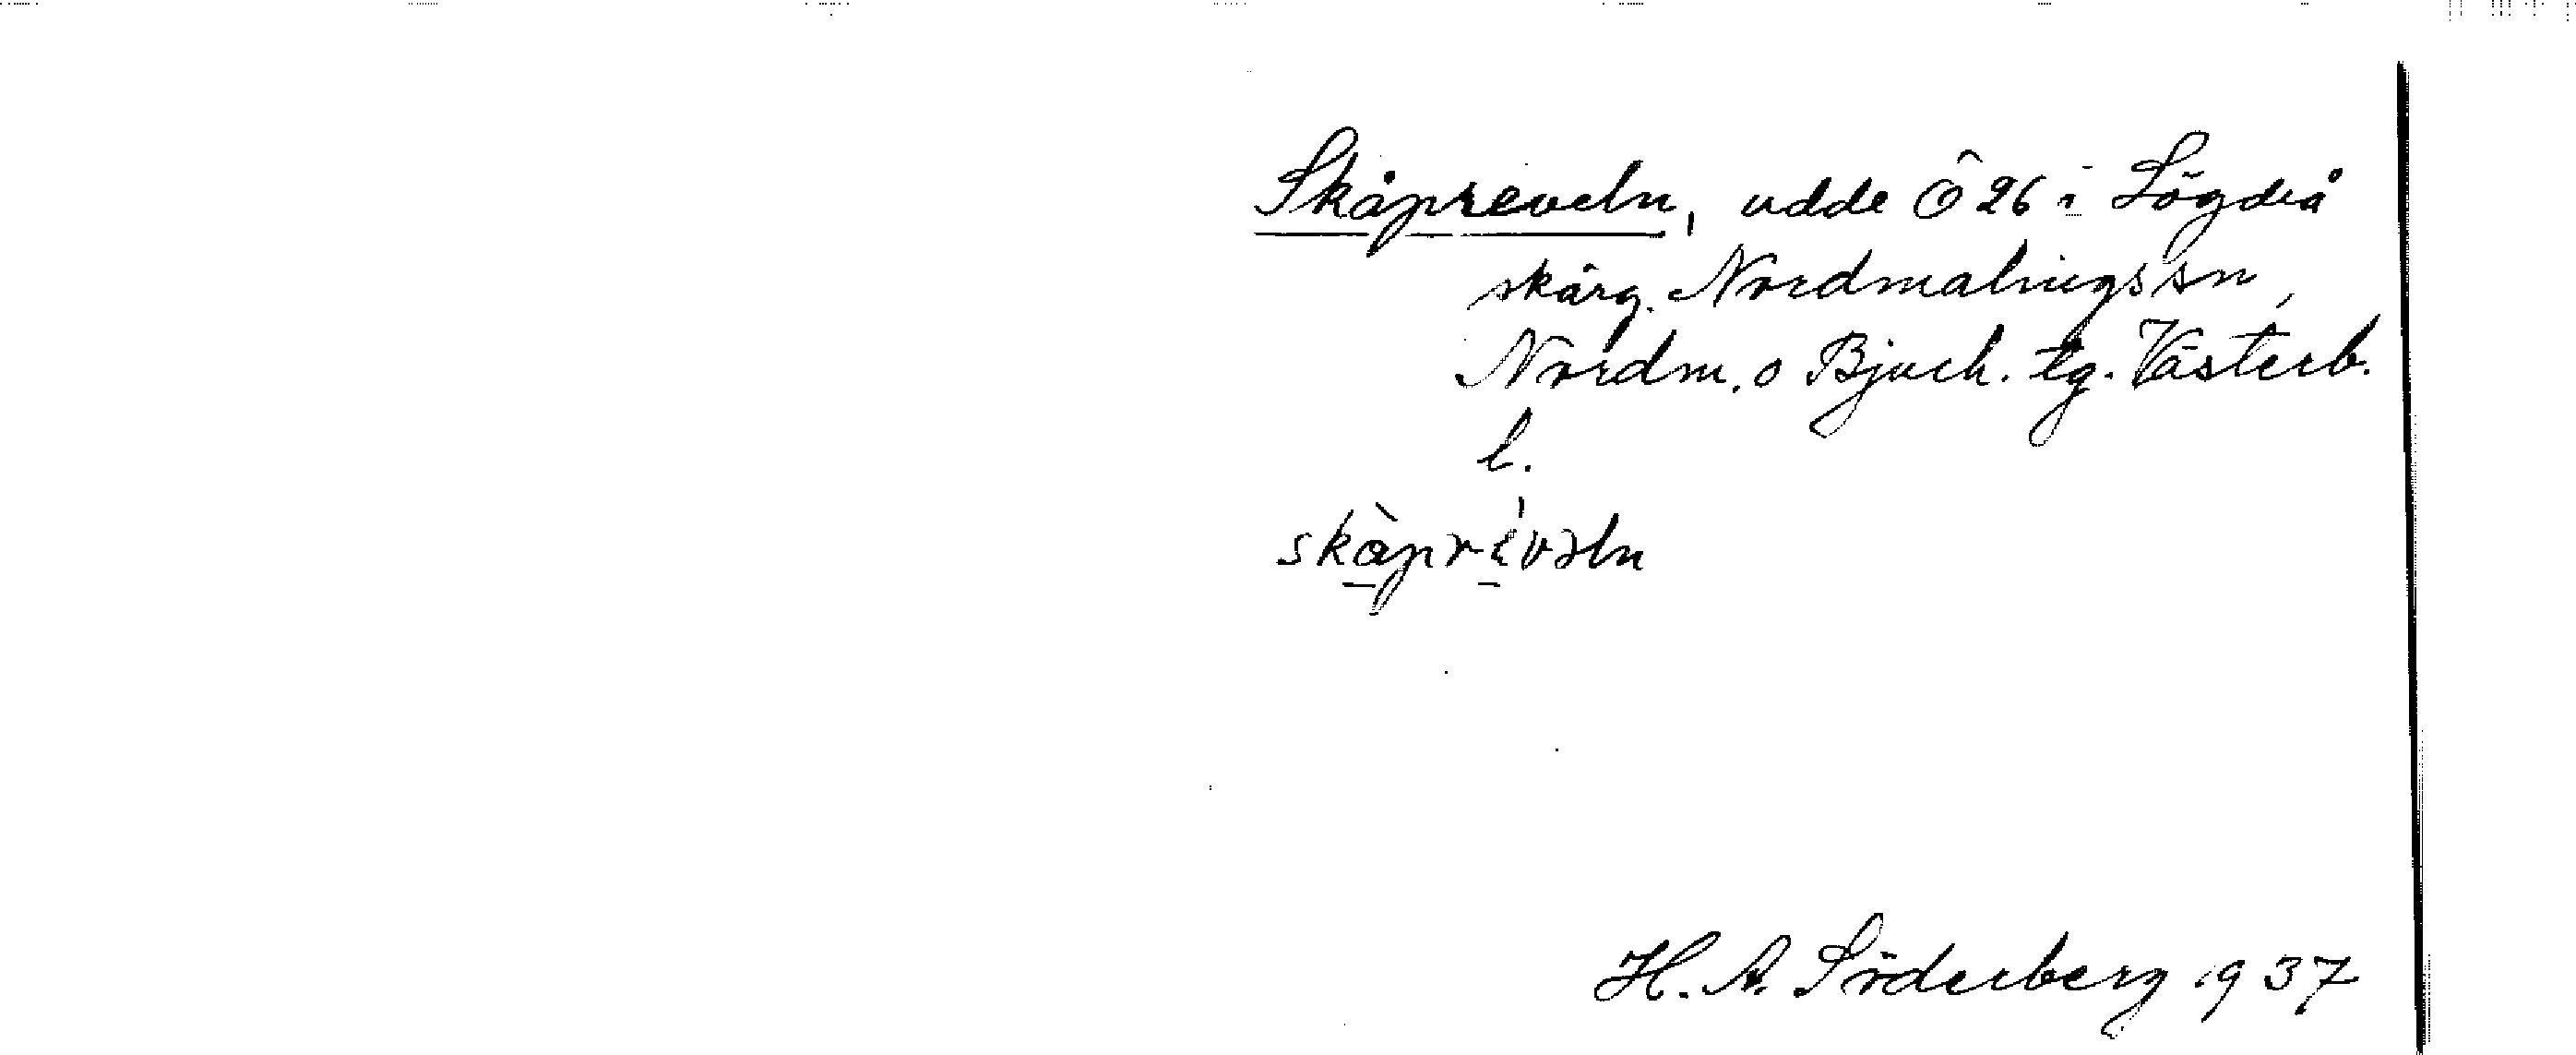 Skåpreveln, udde Ö 26 i Lögdeå
skärg. Nordmalings sn,
Nordm. o Bjurh. tg. Västerb.
l.
skàprívəln
H. A. Söderberg 1937